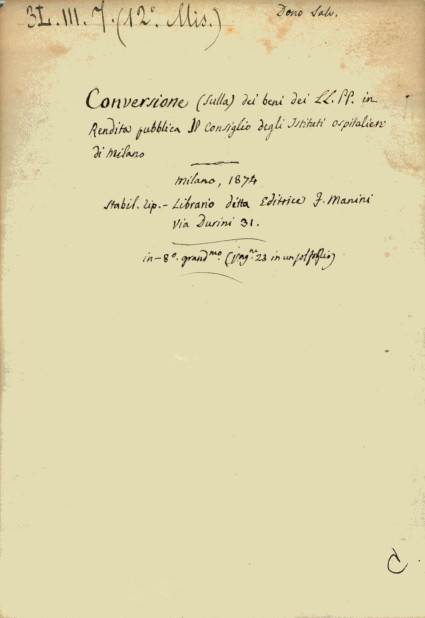 3L.III.7.(12º Mis.)
Dono Salv.
Conversione (sulla) dei beni dei LL.PP. in
Rendita pubblica Il Consiglio degli Istituti ospitalieri
di Milano
Milano, 1874
Stabil. Tip.- Librario ditta Editrice F. Manini
Via Durini 31.
in-8º. grandmo. (pagne 23 in un sol foglio)
C